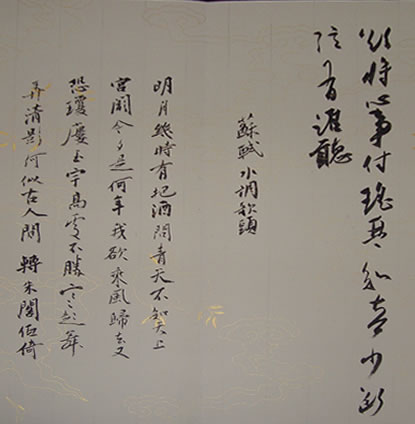 欲將心事付瑤琴知音少斷
弦有誰聽
蘇軾 水調歌頭
明月幾時有把酒問青天不知天上
宮闕今夕是何年我欲乘風歸去又
恐瓊廔玉宇高處不勝寒起舞
弄清影何似在人間 轉朱閣低倚